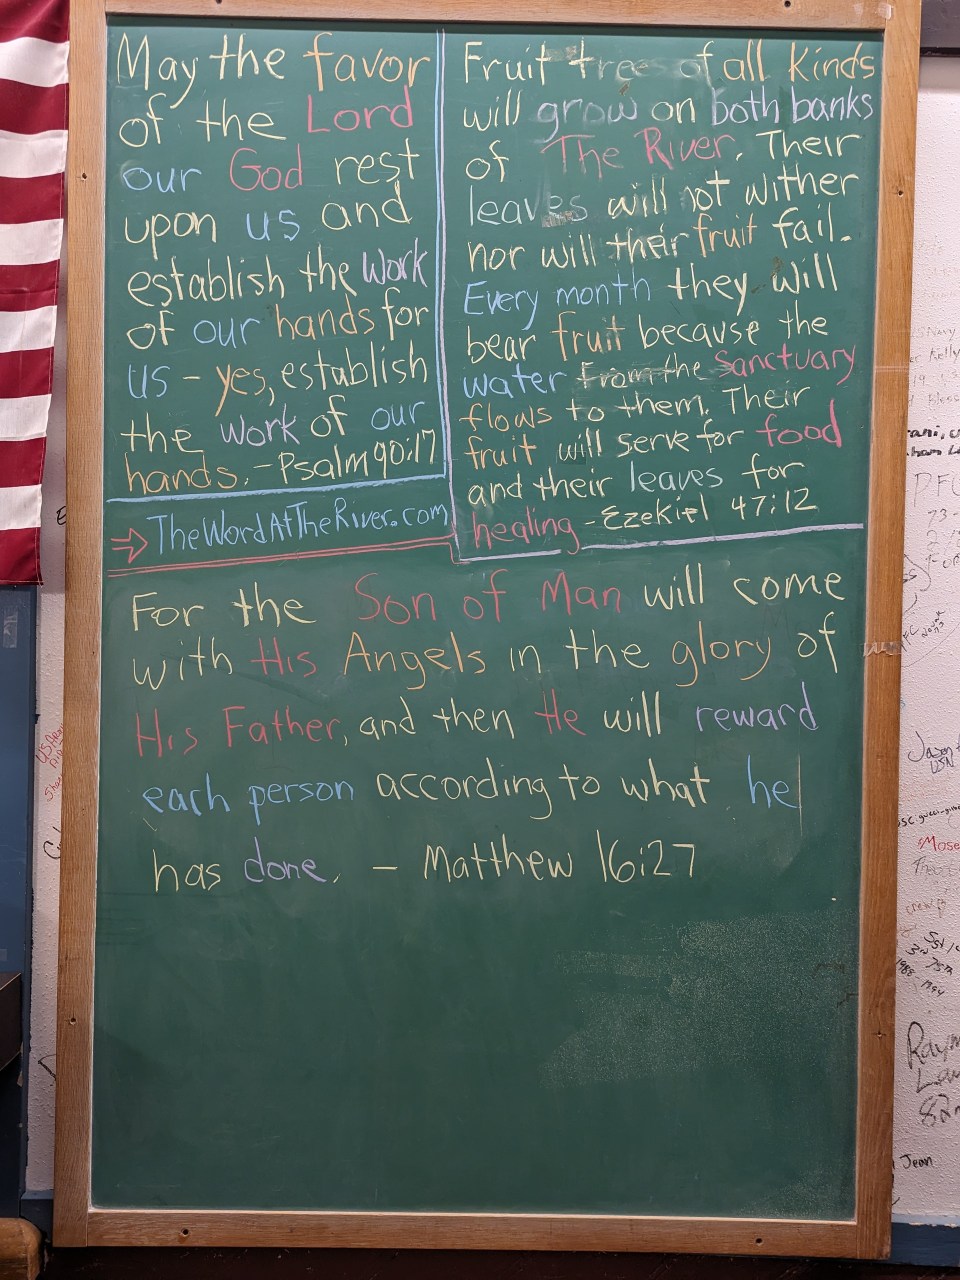 May the favor
of the Lord
our God rest
upon us and
establish the work
of our hands for
us - yes, establish
the work of our
hands. - Psalm 90:17
→ TheWordAtTheRiver.com
Fruit trees of all kinds
will grow on both banks
of The River. Their
leaves will not wither
nor will their fruit fail.
Every month they will
bear fruit because the
water from the Sanctuary
flows to them. Their
fruit will serve for food
and their leaves for
healing - Ezekiel 47:12
For the Son of Man will come
with His Angels in the glory of
His Father, and then He will reward
each person according to what he
has done. - Matthew 16:27
Jason
USN
Mose
1988
1994
Raym
Law
82n
Jean